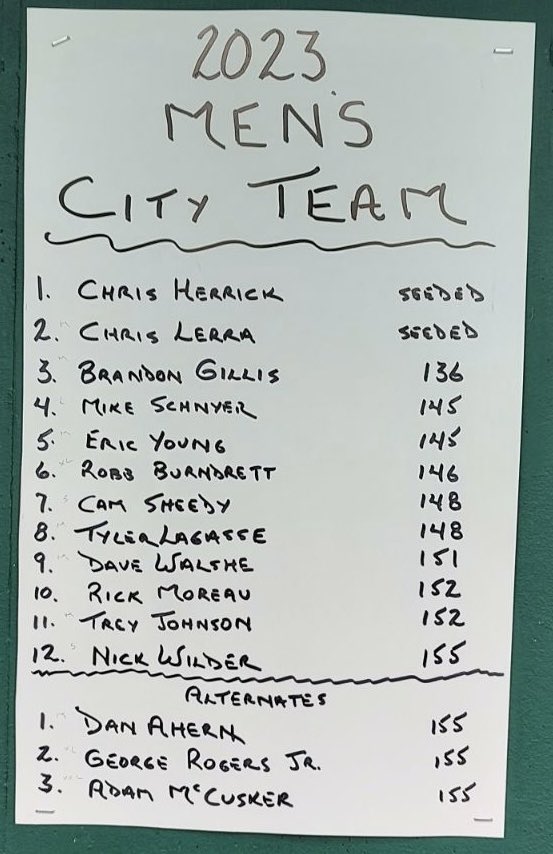 2023
MEN'S
CITY TEAM
1. CHRIS HERRICK SEEDED
2. CHRIS LERRA SEEDED
3. BRANDON GILLIS 136
4. MIKE SCHNYER 145
5. ERIC YOUNG 145
6. ROBB BURNDRETT 146
7. CAM SHEEDY 148
8. TYLER LAGASSE 148
9. DAVE WALSHE 151
10. RICK MOREAU 152
11. TREY JOHNSON 152
12. NICK WILDER 155
ALTERNATES
1. DAN AHERN 155
2. GEORGE ROGERS JR. 155
3. ADAM McCUSKER 155